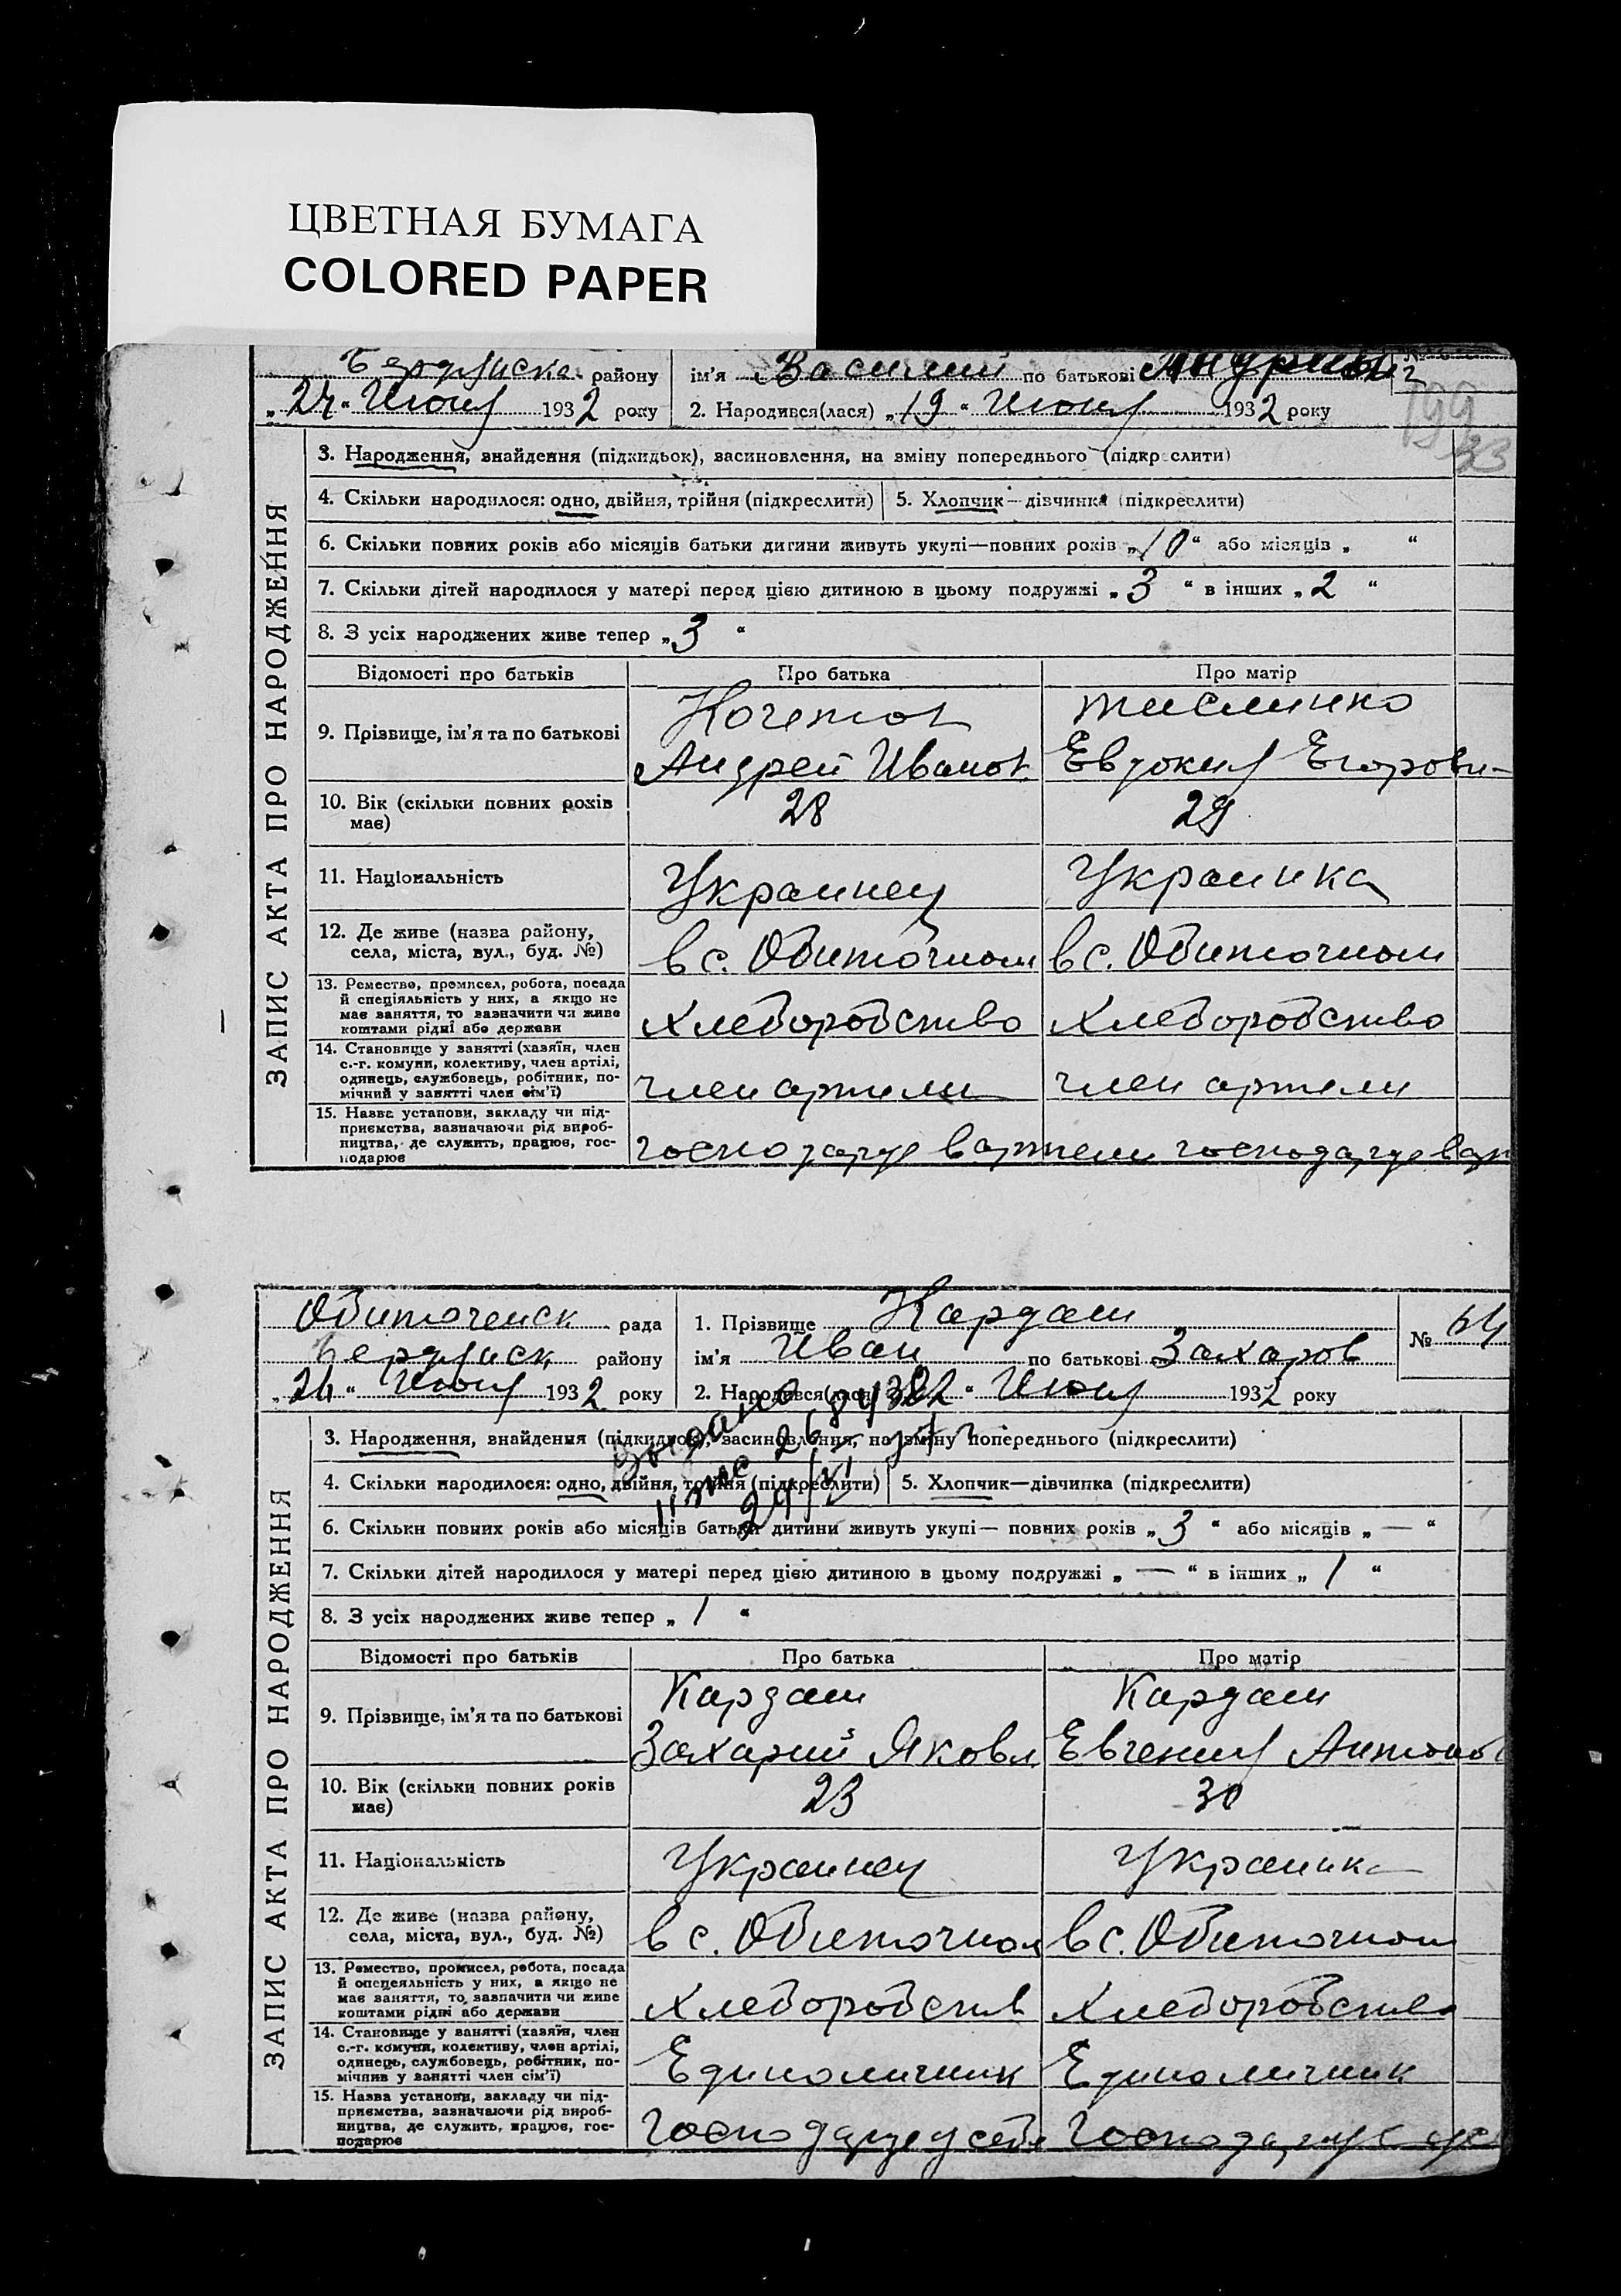 ЦВЕТНАЯ БУМАГА
COLORED PAPER
Бердянск району ім'я Василий по батькові
„24“ Июня 1932 року 2. Народився(лася) „19“ Июня 1932 року
199
33
ЗАПИС АКТА ПРО НАРОДЖЕННЯ
3. Народження, знайдення (підкидьок), засиновлення, на зміну попереднього (підкреслити)
4. Скільки народилося: одно, двійня, трійня (підкреслити) 5. Хлопчик—дівчинка (підкреслити)
6. Скільки повних років або місяців батьки дитини живуть укупі—повних років „10“ або місяців „ “
7. Скільки дітей народилося у матері перед цією дитиною в цьому подружжі „3“ в інших „2“
8. З усіх народжених живе тепер „3“
Відомості про батьків Про батька Про матір
9. Прізвище, ім'я та по батькові Кочетов
Андрей Иванов Евдокия Егоровн
10. Вік (скільки повних років має) 28 29
11. Національність Украинец Украинка
12. Де живе (назва району, села, міста, вул., буд. №) в с. Обиточном в с. Обиточном
13. Ремество, промисел, робота, посада
й спеціяльність у них, а якщо не
має заняття, то зазначити чи живе
коштами рідні або держави Хлеборобство Хлеборобство
14. Становище у занятті (хазяїн, член
с.-г. комуни, колективу, член артілі,
одинець, службовець, робітник, по-
мічний у занятті член сім'ї) член артели член артели
15. Назва установи, закладу чи під-
приємства, зазначаючи рід вироб-
ництва, де служить, працює, гос-
подарює господарує в артели господарує в арт
Обиточенск рада 1. Прізвище Кардаш № 64
Бердянск району ім'я Иван по батькові Захаров
„24“ Июня 1932 року 2. Народився(лася) „22“ Июня 1932 року
ЗАПИС АКТА ПРО НАРОДЖЕННЯ
3. Народження, знайдення (підкидьок), засиновлення, на зміну попереднього (підкреслити)
4. Скільки народилося: одно, двійня, трійня (підкреслити) 5. Хлопчик—дівчинка (підкреслити)
6. Скільки повних років або місяців батьки дитини живуть укупі— повних років „3“ або місяців „—“
7. Скільки дітей народилося у матері перед цією дитиною в цьому подружжі „—“ в інших „1“
8. З усіх народжених живе тепер „1“
Відомості про батьків Про батька Про матір
9. Прізвище, ім'я та по батькові Кардаш Кардаш
Захарий Яковл Евгения Антонов
10. Вік (скільки повних років має) 23 30
11. Національність Украинец Украинка
12. Де живе (назва району, села, міста, вул., буд. №) в с. Обиточном в с. Обиточном
13. Ремество, промисел, робота, посада
й спецеяльність у них, а якщо не
має заняття, то зазначити чи живе
коштами рідні або держави Хлеборобств Хлеборобство
14. Становище у занятті (хазяїн, член
с.-г. комуни, колективу, член артілі,
одинець, службовець, робітник, по-
мічнив у занятті член сім'ї) Единоличник Единоличник
15. Назва установи, закладу чи під-
приємства, зазначаючи рід вироб-
ництва, де служить, працює, гос-
подарює Господарує у себе Господарує у се